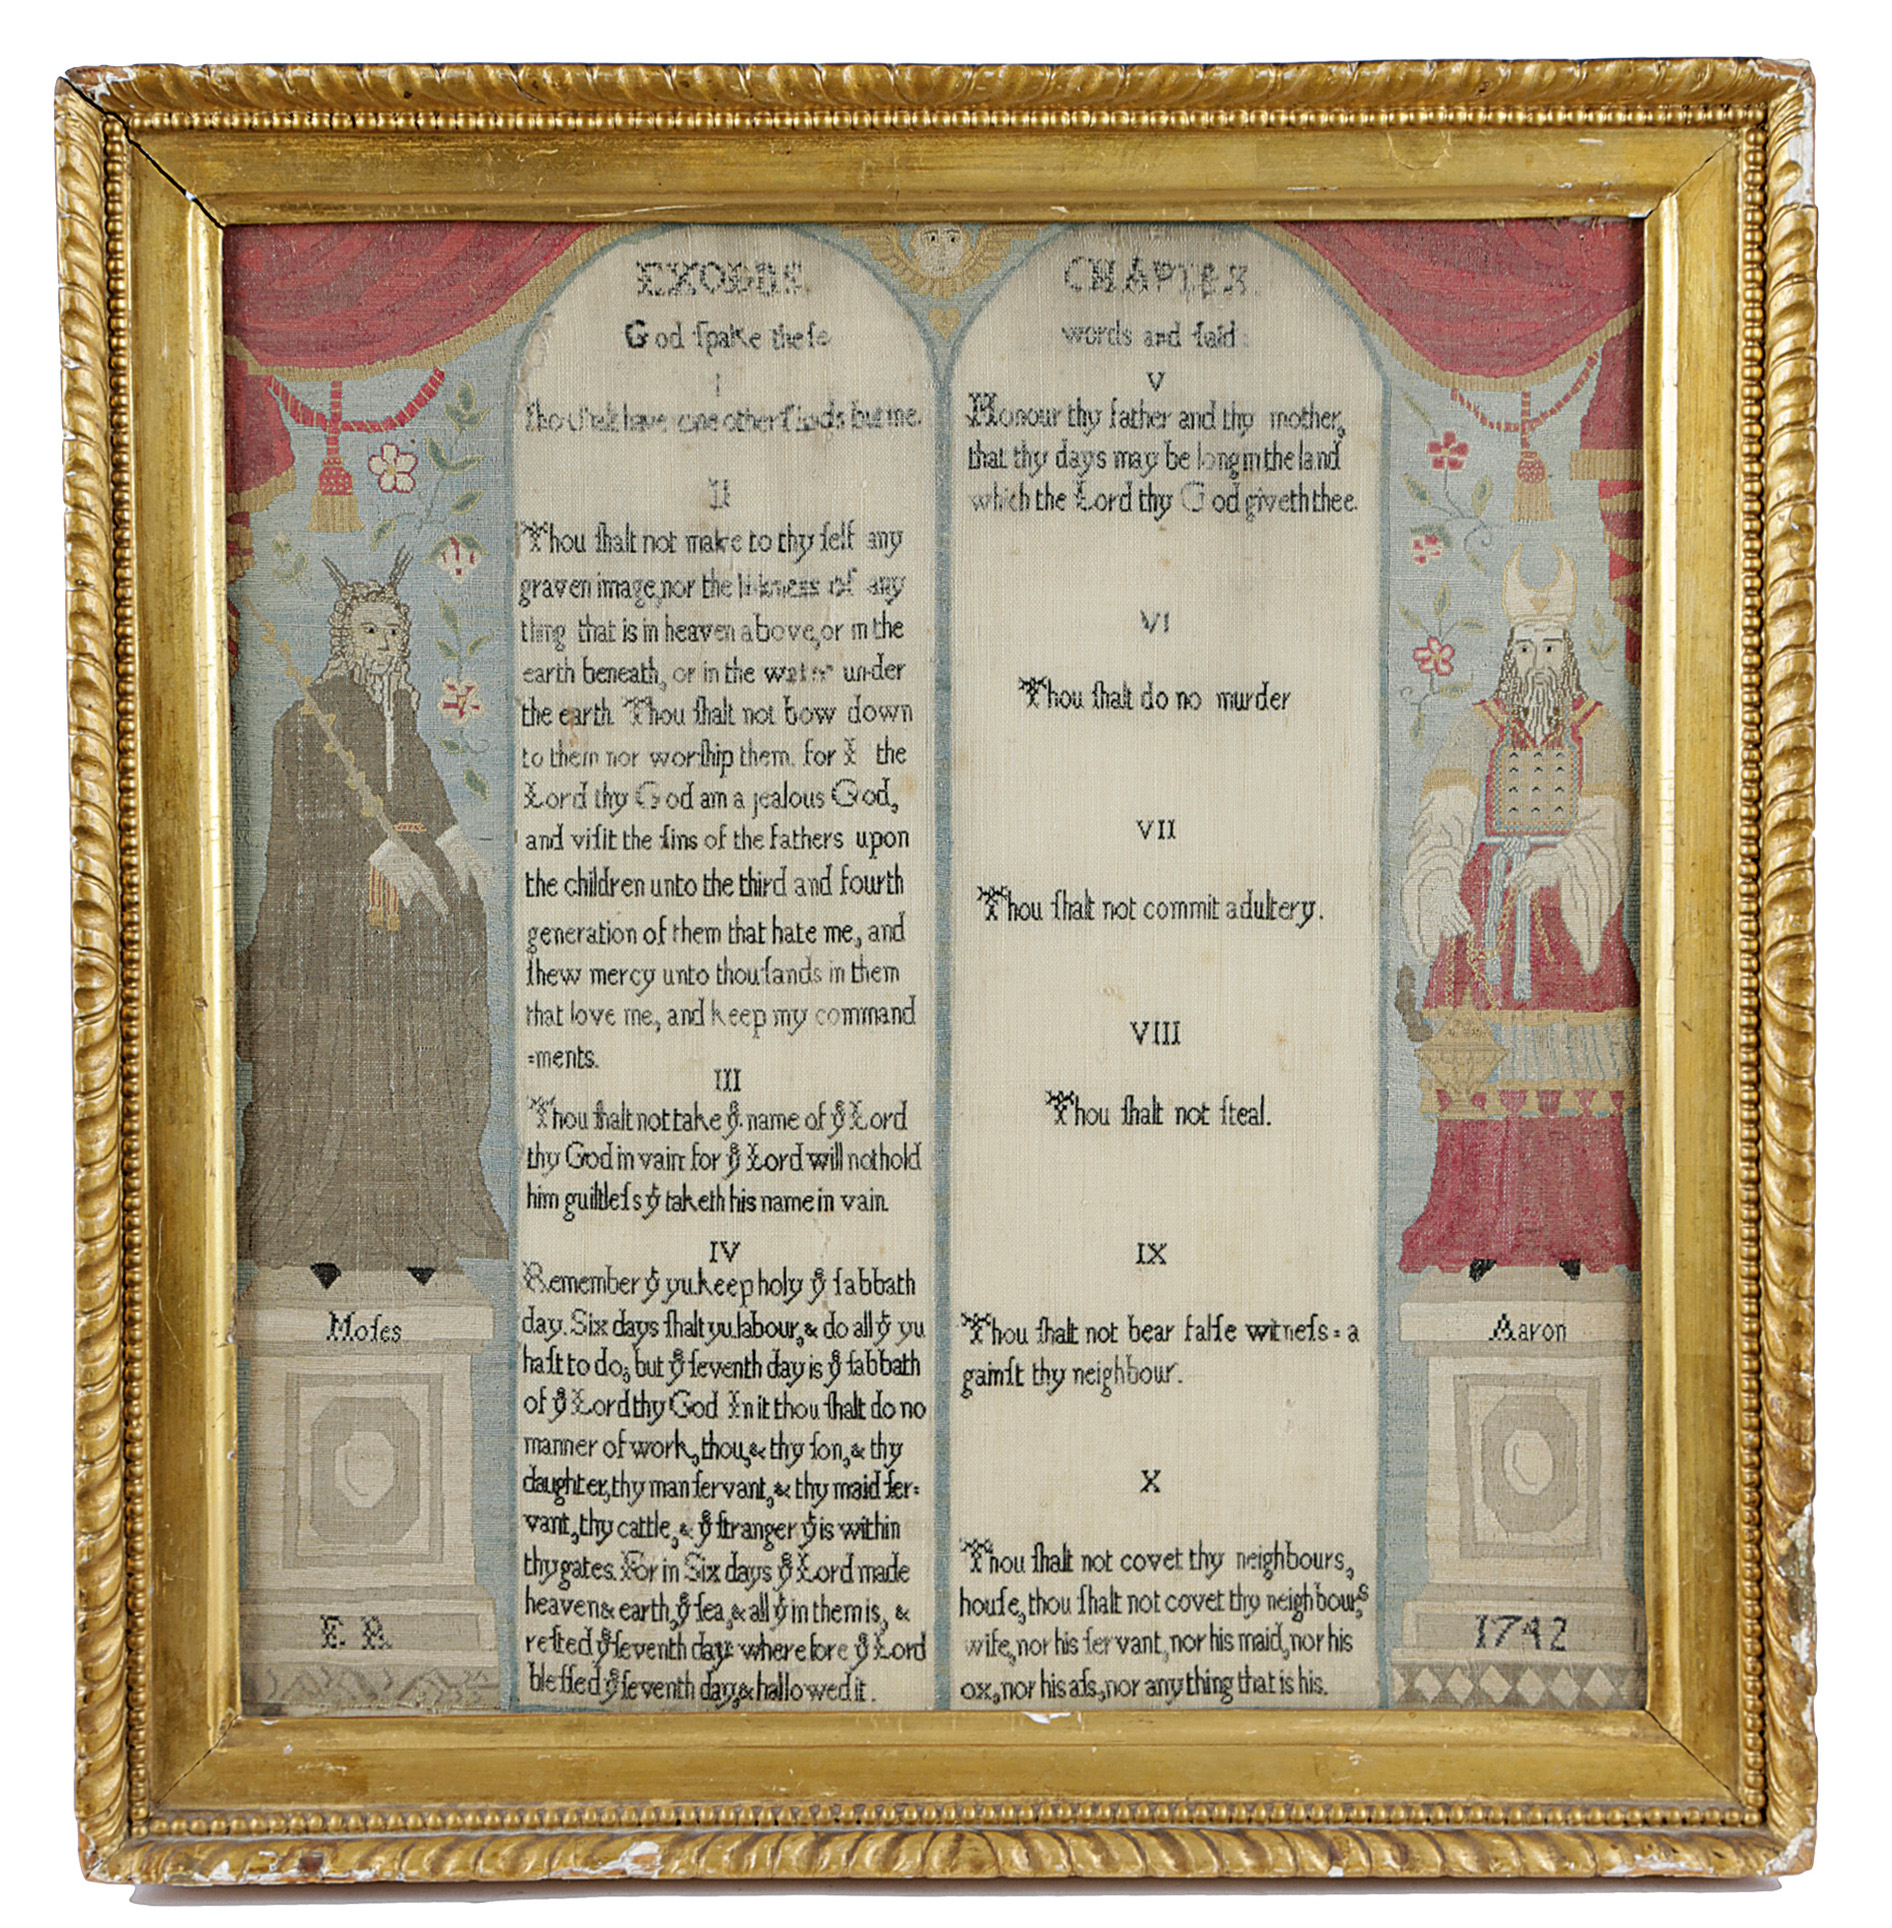 EXODUS
God ſpake theſe
I
Thou ſhalt have none other Gods but me.
II
Thou ſhalt not make to thy ſelf any
graven image, nor the likness of any
thing that is in heaven above, or in the
earth beneath, or in the water under
the earth. Thou ſhalt not bow down
to them nor worſhip them. for I the
Lord thy God am a jealous God,
and viſit the ſins of the fathers upon
the children unto the third and fourth
generation of them that hate me, and
ſhew mercy unto thouſands in them
that love me, and keep my command
=ments.
III
Thou ſhalt not take yͤ name of yͤ Lord
thy God in vain: for yͤ Lord will not hold
him guiltleſs yͭ taketh his name in vain.
IV
Remember yͭ yu keep holy yͤ ſabbath
day. Six days ſhalt yu labour, & do all yͭ yu
haſt to do; but yͤ ſeventh day is yͤ ſabbath
of yͤ Lord thy God In it thou ſhalt do no
manner of work, thou, & thy ſon, & thy
daughter, thy man ſervant, & thy maid ſer=
vant, thy cattle, & yͤ ſtranger yͭ is within
thy gates. For in Six days yͤ Lord made
heaven & earth, yͤ ſea, & all yͭ in them is, &
reſted yͤ ſeventh day: wherefore yͤ Lord
bleſſed yͤ ſeventh day, & hallowed it.
CHAPTER
words and ſaid:
V
Honour thy father and thy mother,
that thy days may be long in the land
which the Lord thy God giveth thee.
VI
Thou ſhalt do no murder
VII
Thou ſhalt not commit adultery.
VIII
Thou ſhalt not ſteal.
IX
Thou ſhalt not bear falſe witneſs = a
gainſt thy neighbour.
X
Thou ſhalt not covet thy neighbours,
houſe, thou ſhalt not covet thy neighbour,s
wife, nor his ſervant, nor his maid, nor his
ox, nor his aſs, nor any thing that is his.
Moſes
Aaron
1742